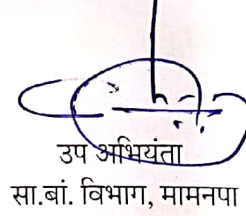 उप अभियंता
सा.बां. विभाग, मामनपा